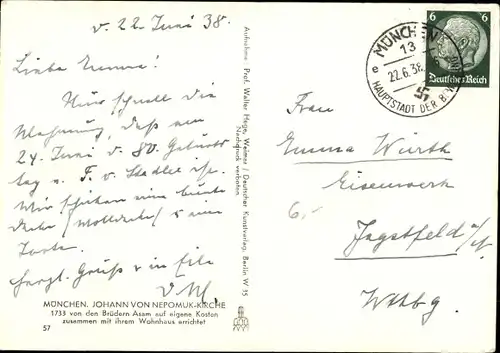 v. 22. Juni 38.
Liebe Emma!
Nur schnell die
Mahnung, daß am
24. Juni d. 80. Geburts
tag v. F. v. Stadler ist.
Wir schicken eine bunte
Decke (Wolldecke) & eine
Torte.
Herzl. Gruß & in Eile
MÜNCHEN. JOHANN VON NEPOMUK-KIRCHE
1733 von den Brüdern Asam auf eigene Kosten
zusammen mit ihrem Wohnhaus errichtet
57
Aufnahme Prof. Walter Hege, Weimar / Deutscher Kunstverlag, Berlin W 35
Nachdruck verboten
MÜNCHEN
13
e
22.6.38
HAUPTSTADT DER BEWEGUNG
6 6
Deutsches Reich
Frau
Emma Würth
Eisenwerk
6,-
Jagstfeld a/J.
Wttbg.